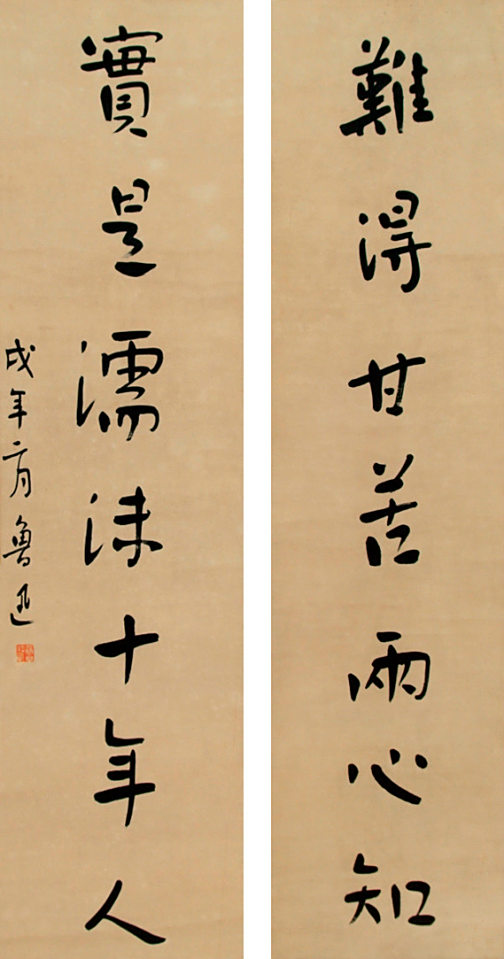 難得甘苦兩心知
實是濡沫十年人
戌年二月 魯迅